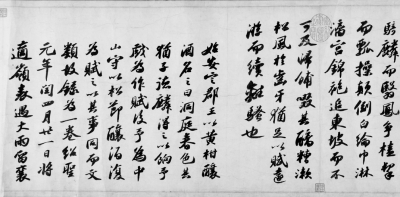 騎麟而翳鳳爭榼挈
而瓢操顛倒白綸巾淋
漓宮錦袍追東坡而不
可及歸餔歠其醨糟漱
松風於齒牙猶足以賦遠
游而續離騷也
始安定郡王以黃柑釀
酒名之曰洞庭春色其
猶子德麟得之以餉予
戲為作賦後予為中
山守以松節釀酒復
為賦之以其事同而文
類故錄為一卷紹聖
元年閏四月廿一日將
適嶺表遇大雨留襄